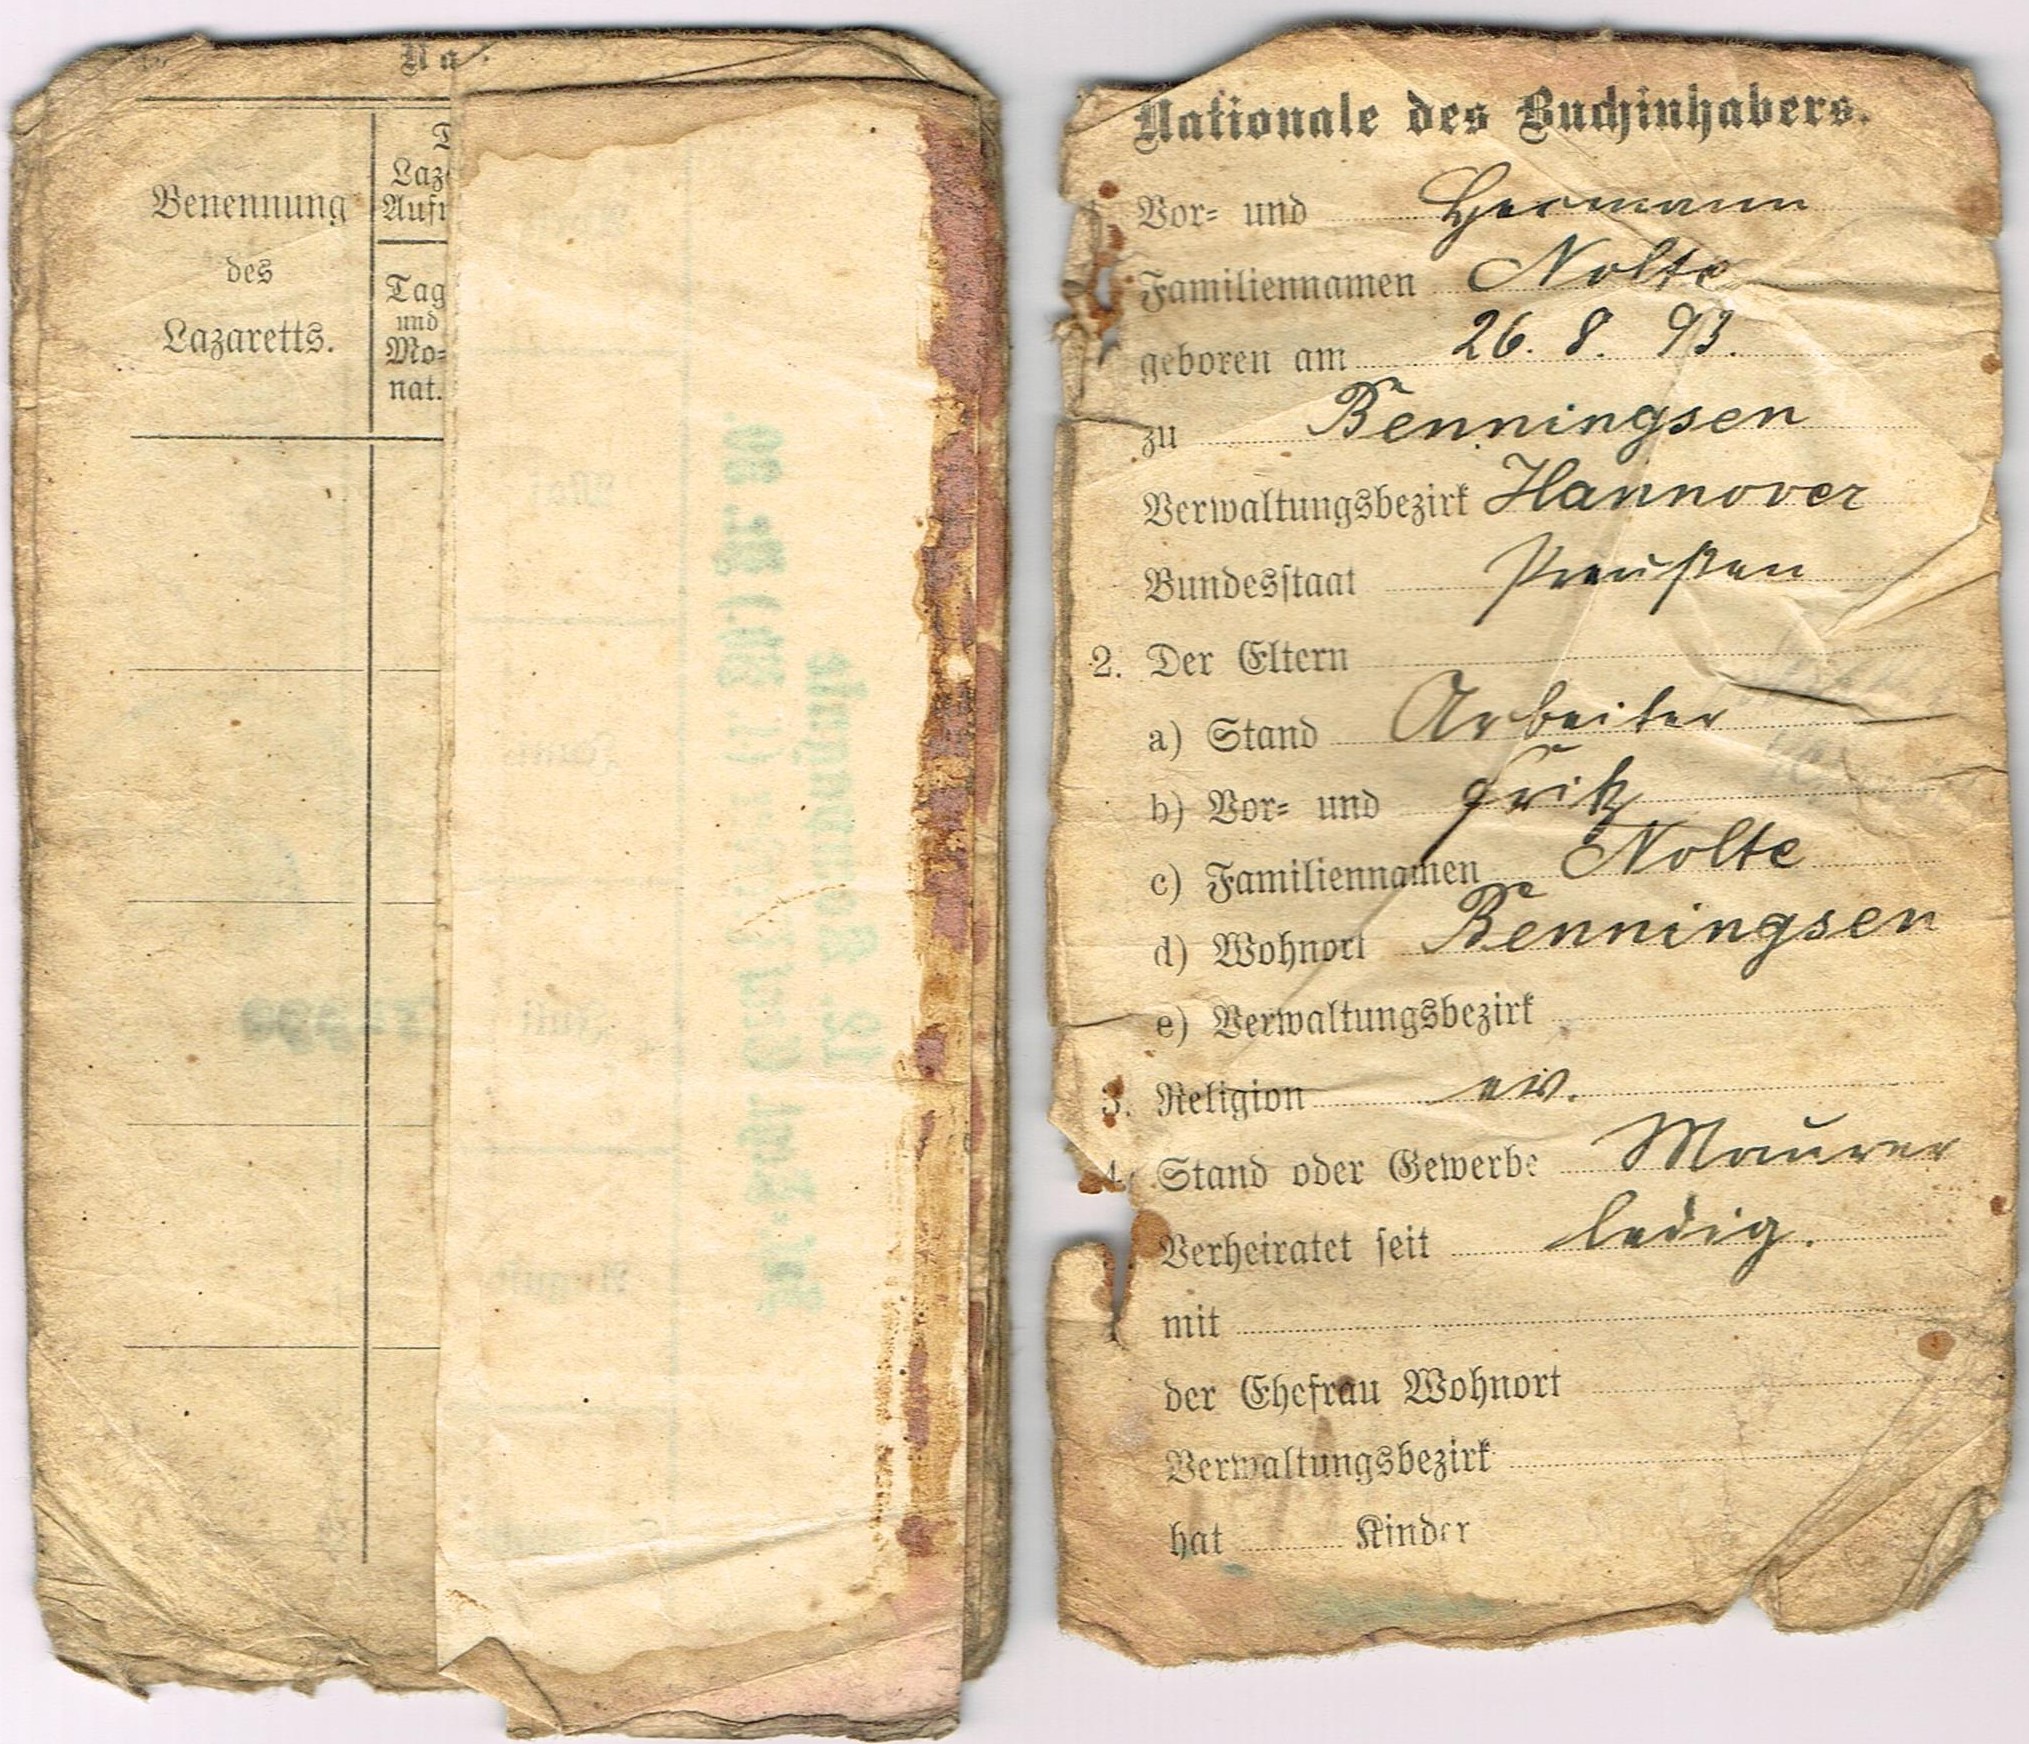 Na
Benennung
des
Lazaretts.
Laz
Auf
Tag
und
Mo-
nat.
Nationale des Buchinhabers.
Vor- und Hermann
Familiennamen Nolte
geboren am 26. 8. 93.
zu Benningsen
Verwaltungsbezirk Hannover
Bundesstaat Preußen
2. Der Eltern
a) Stand Arbeiter
b) Vor- und Fritz
c) Familiennamen Nolte
d) Wohnort Benningsen
e) Verwaltungsbezirk
3. Religion ev.
4. Stand oder Gewerbe Maurer
Verheiratet seit ledig.
mit
der Ehefrau Wohnort
Verwaltungsbezirk
hat Kinder